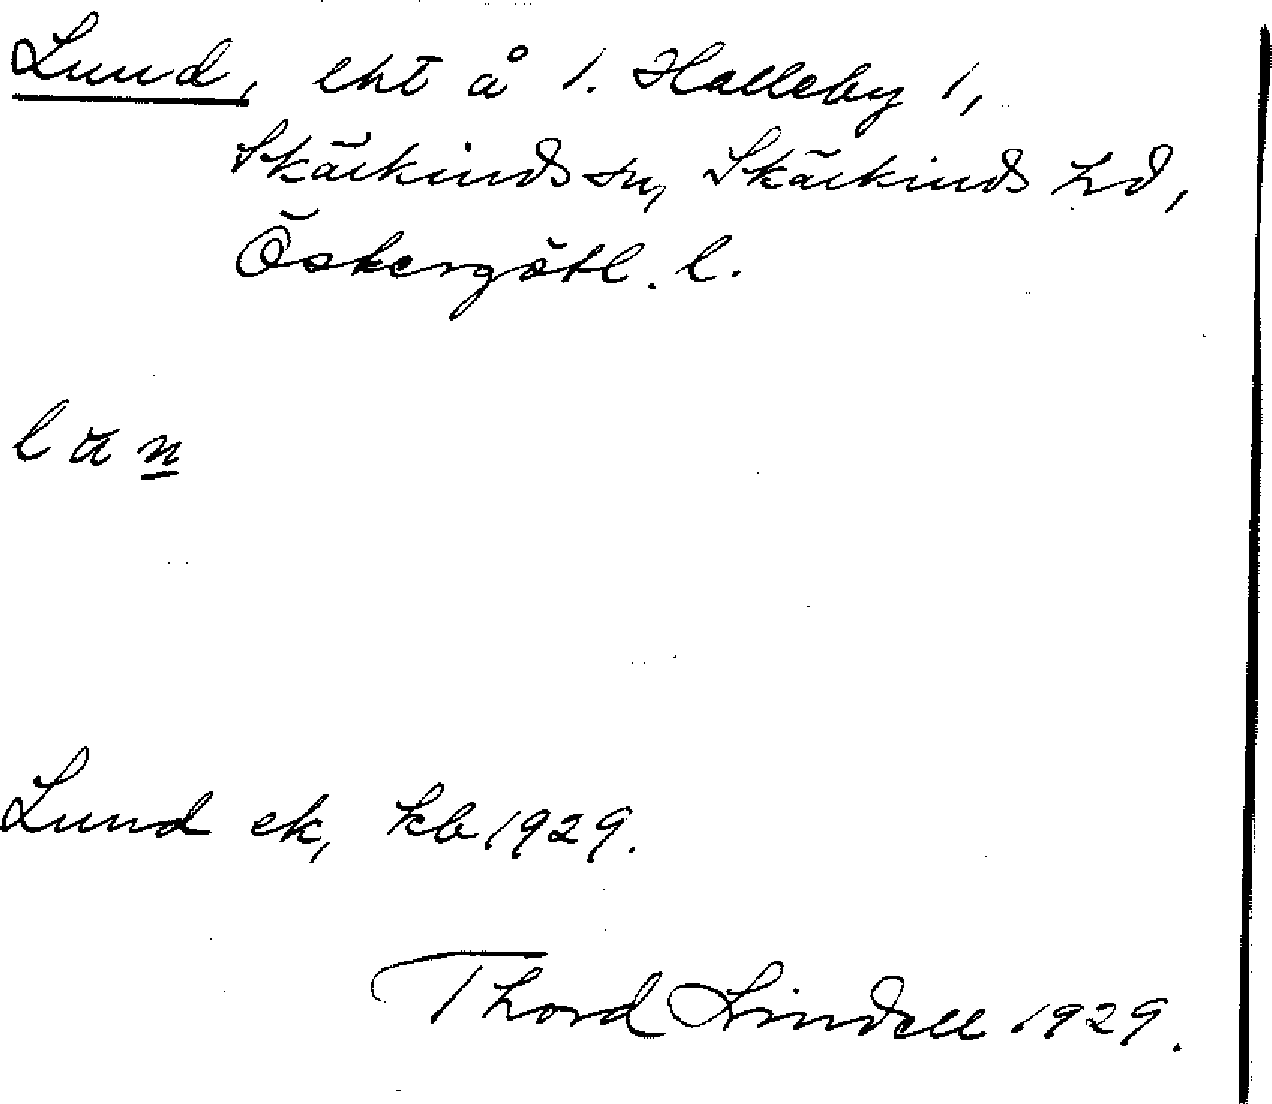 Lund, lht å 1. Halleby 1,
Skärkinds sn, Skärkinds hd,
Östergötl. l.
lun
Lund ek, kb 1929.
Thord Lindell 1929.